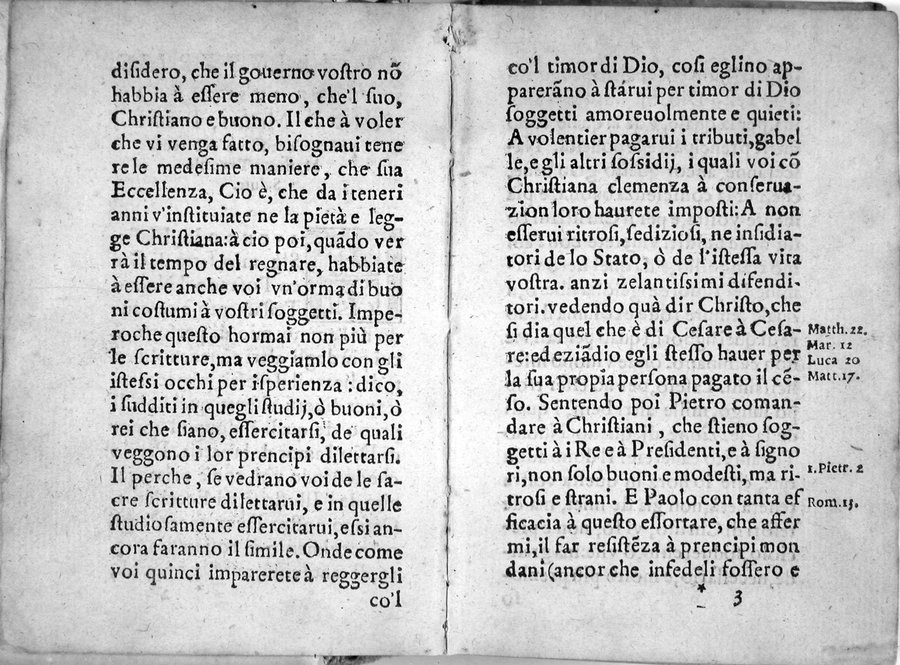 diſidero, che il gouerno voſtro nõ
habbia à eſſere meno, che'l ſuo,
Chriſtiano e buono. Il che à voler
che vi venga fatto, biſognaui tene
re le medeſime maniere, che ſua
Eccellenza, Cio è, che da i teneri
anni v'inſtituiate ne la pietà e leg-
ge Chriſtiana: à cio poi, quãdo ver
rà il tempo del regnare, habbiate
à eſſere anche voi vn'orma di buo
ni coſtumi à voſtri ſoggetti. Impe-
roche queſto hormai non più per
le ſcritture, ma veggiamlo con gli
iſteſsi occhi per iſperienza: dico,
i ſudditi in quegli ſtudij, ò buoni, ò
rei che ſiano, eſſercitarſi, de quali
veggono i lor prencipi dilettarſi.
Il perche, ſe vedrano voi de le ſa-
cre ſcritture dilettarui, e in quelle
ſtudioſamente eſſercitarui, eſsi an-
cora faranno il ſimile. Onde come
voi quinci imparerete à reggergli
co'l
co'l timor di Dio, coſi eglino ap-
parerãno à ſtarui per timor di Dio
ſoggetti amoreuolmente e quieti:
A volentier pagarui i tributi, gabel
le, e gli altri ſoſsidij, i quali voi cõ
Chriſtiana clemenza à conſerua-
zion loro haurete impoſti: A non
eſſerui ritroſi, ſedizioſi, ne inſidia-
tori de lo Stato, ò de l'iſteſſa vita
voſtra. anzi zelantiſsimi difendi-
tori. vedendo quà dir Chriſto, che
ſi dia quel che è di Ceſare à Ceſa-
re: ed eziãdio egli ſteſſo hauer per
la ſua propia perſona pagato il cẽ-
ſo. Sentendo poi Pietro coman-
dare à Chriſtiani, che ſtieno ſog-
getti à i Re e à Preſidenti, e à ſigno
ri, non ſolo buoni e modeſti, ma ri-
troſi e ſtrani. E Paolo con tanta ef
ficacia à queſto eſſortare, che affer
mi, il far reſiſtẽza à prencipi mon
dani (ancor che infedeli foſſero e
* 3
Matth. 22.
Mar. 12
Luca 20
Matt. 17.
1. Pietr. 2
Rom. 13.